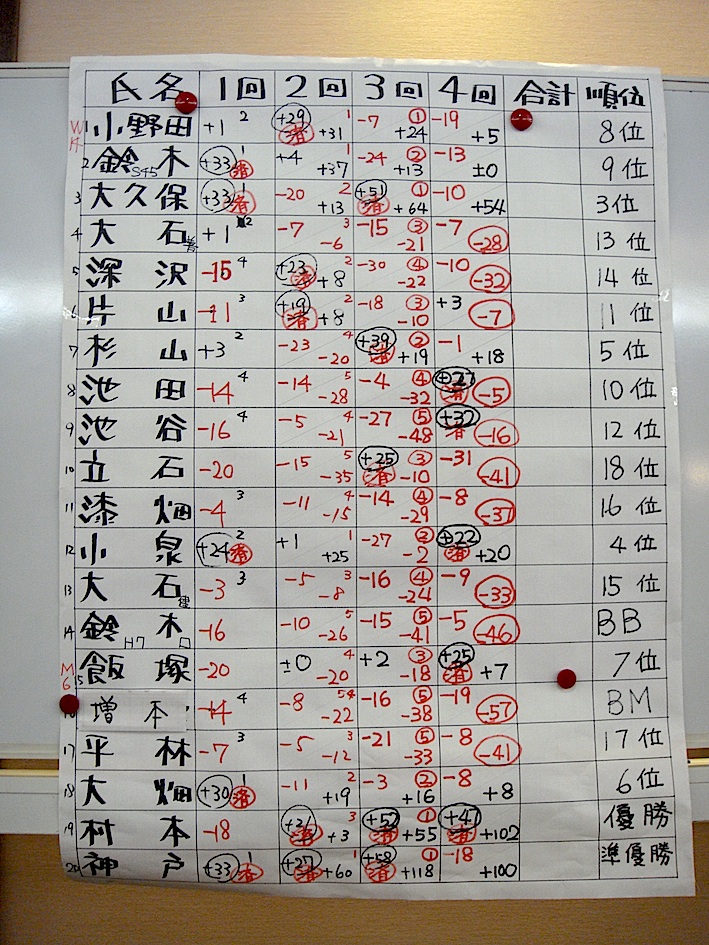 氏名 1回 2回 3回 4回 合計 順位
1 小野田 +1 2 +29 済 1 +31 -7 ① +24 -19 +5 8位
2 鈴木 S45 +33 済 1 +4 1 +37 -24 ② +13 -13 ±0 9位
3 大久保 +33 済 1 -20 2 +13 +51 済 ① +64 -10 +54 3位
4 大石 +1 2 -7 3 -6 -15 ③ -21 -7 -28 13位
5 深沢 -15 4 +23 済 2 +8 -30 ④ -22 -10 -32 14位
6 片山 -11 3 +19 済 2 +8 -18 ③ -10 +3 -7 11位
7 杉山 +3 2 -23 4 -20 +39 済 ② +19 -1 +18 5位
8 池田 -14 4 -14 5 -28 -4 ④ -32 +27 済 -5 10位
9 池谷 -16 4 -5 4 -21 -27 ⑤ -48 +32 済 -16 12位
10 立石 -20 -15 5 -35 +25 済 ③ -10 -31 -41 18位
11 漆畑 -4 3 -11 4 -15 -14 ④ -29 -8 -37 16位
12 小泉 +24 済 2 +1 1 +25 -27 ② -2 +22 済 +20 4位
13 大石 健 -3 3 -5 3 -8 -16 ④ -24 -9 -33 15位
14 鈴木 H7 -16 -10 5 -26 -15 ⑤ -41 -5 -46 BB
15 飯塚 -20 ±0 4 -20 +2 ③ -18 +25 済 +7 7位
16 増本 -14 4 -8 -22 -16 ⑤ -38 -19 -57 BM
17 平林 -7 3 -5 3 -12 -21 ⑤ -33 -8 -41 17位
18 大畑 +30 済 1 -11 2 +19 -3 ② +16 -8 +8 6位
19 村本 -18 +21 済 3 +3 +52 済 ① +55 +47 済 +102 優勝
20 神戸 +33 済 1 +27 済 1 +60 +58 済 ① +118 -18 +100 準優勝